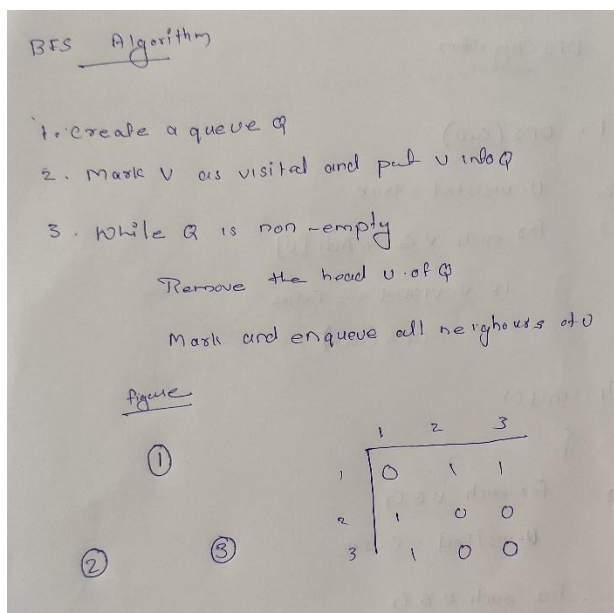 BFS Algorithm
1. Create a queue Q
2. Mark V as visited and put v into Q
3. While Q is non-empty
Remove the head u of Q
Mark and enqueue all neighours of U
figure
1
2 3
1 2 3
1 0 1 1
2 1 0 0
3 1 0 0